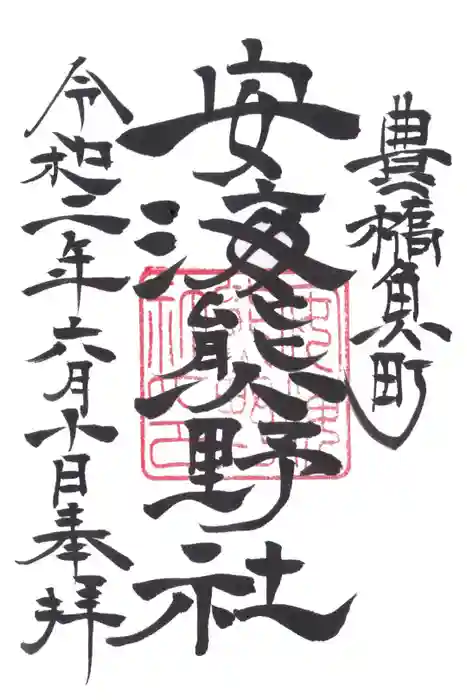 豊橋魚町
安海熊野社
令和二年六月十日奉拝